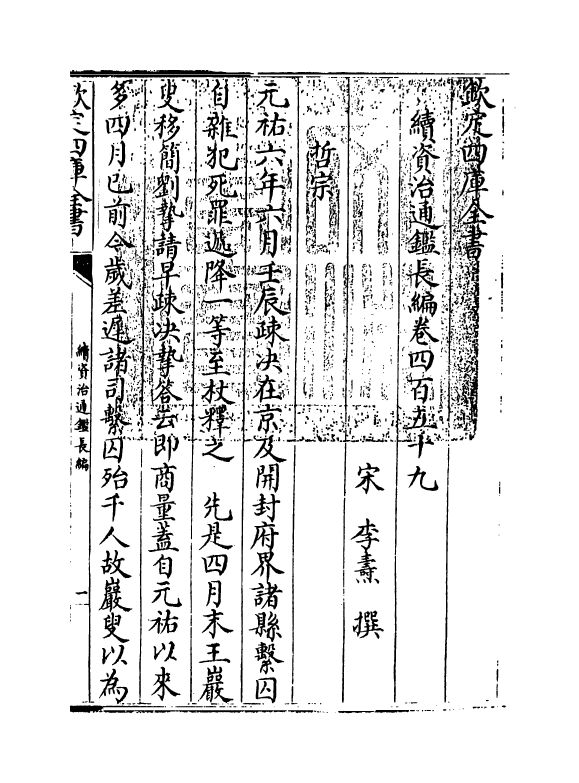 欽定四庫全書
續資治通鑑長編卷四百五十九
宋 李燾 撰
哲宗
元祐六年六月壬辰疎决在京及開封府界諸縣繫囚
自雜犯死罪遞降一等至杖釋之 先是四月末王巖
叟移簡劉摯請早疎决摯答云即商量蓋自元祐以來
多四月已前今歲差遲諸司繫囚殆千人故巖叟以為
欽定四庫全書
續資治通鑑長編
一